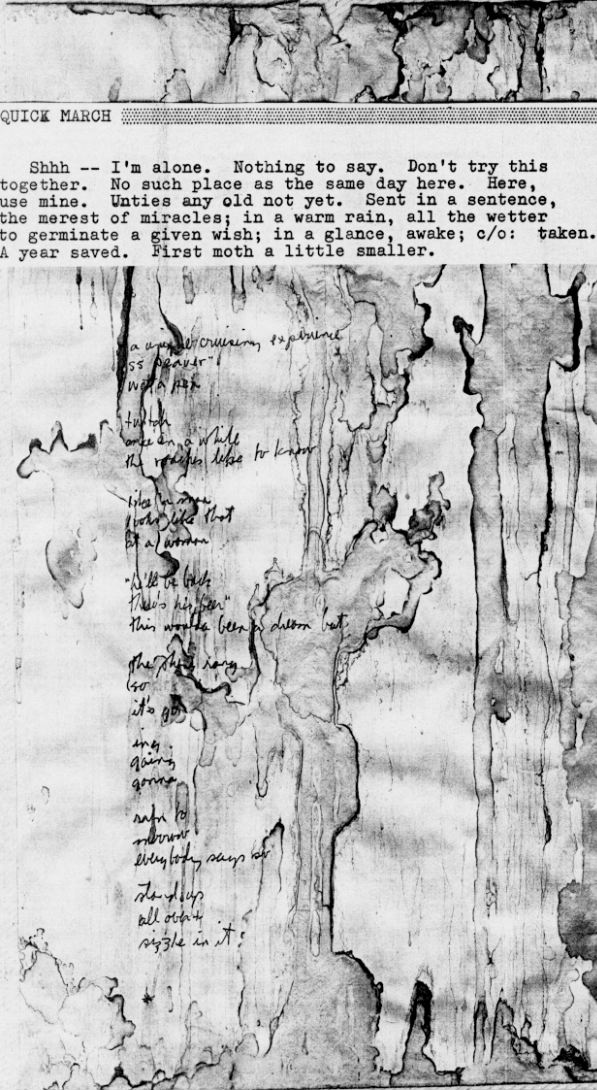 QUICK MARCH
Shhh -- I'm alone.  Nothing to say.  Don't try this
together.  No such place as the same day here.  Here,
use mine.  Unties any old not yet.  Sent in a sentence,
the merest of miracles; in a warm rain, all the wetter
to germinate a given wish; in a glance, awake; c/o:  taken.
A year saved.  First moth a little smaller.
a cruising experience
"
a pen
twitch
once in a while
the roaches like to know
like a man
looks like that
at a woman
"he'll be back
there's his beer"
this woulda been a dream but
the phone rang
(so
it's go
ing
going
gonna
rain to
morrow
everybody says so
stand up
all over
sizzle in it